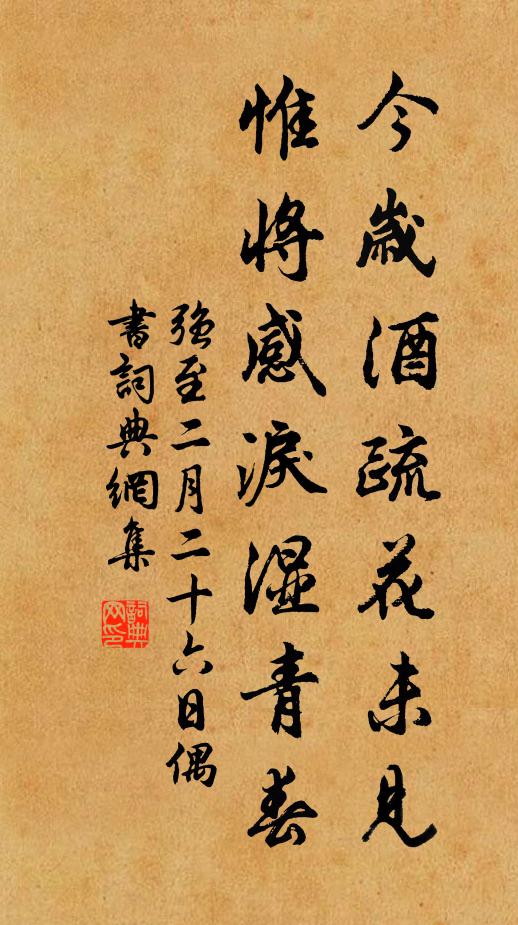 今歲酒疏花未見
惟將感淚湿青春
強至二月二十六日偶
書詞典網集
詞典
网印